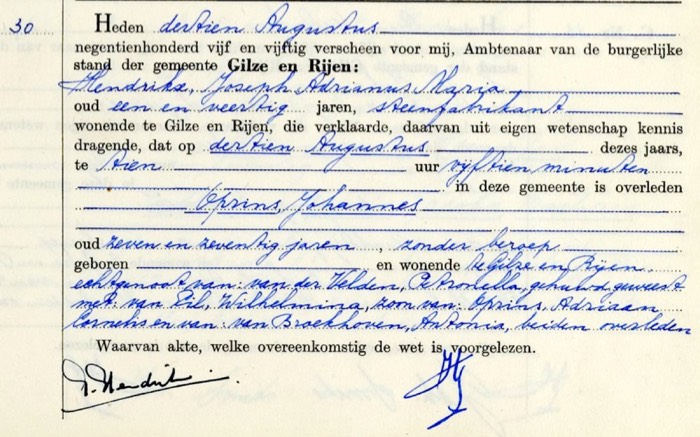 30
Heden dertien Augustus
negentienhonderd vijf en vijftig verscheen voor mij, Ambtenaar van de burgerlijke
stand der gemeente Gilze en Rijen:
Hendrikx, Joseph Adrianus Maria
oud een en veertig jaren, steenfabrikant
wonende te Gilze en Rijen, die verklaarde, daarvan uit eigen wetenschap kennis
dragende, dat op dertien Augustus dezes jaars,
te tien uur vijftien minuten
in deze gemeente is overleden
Oprins, Johannes
oud zeven en zeventig jaren, zonder beroep
geboren en wonende te Gilze en Rijen
echtgenoot van: van der Velden, Petronella, gehuwd geweest
met: van Gil, Wilhelmina, zoon van: Oprins, Adriaan
Cornelis en van: van Broekhoven, Antonia, beiden overleden
Waarvan akte, welke overeenkomstig de wet is voorgelezen.